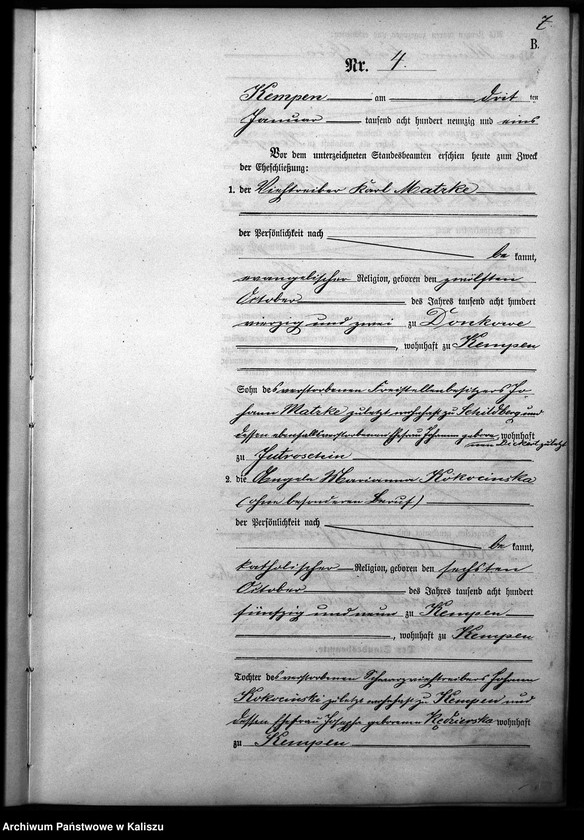 7.
B.
Nr. 4.
Kempen am drit ten
Januar tausend acht hundert neunzig und eins
Vor dem unterzeichneten Standesbeamten erschien heute zum Zweck
der Eheschließung:
1. der Viehtreiber Karl Matzke
der Persönlichkeit nach
be kannt,
evangelischer Religion, geboren den zwölften
October des Jahres tausend acht hundert
vierzig und zwei zu Donkowe
, wohnhaft zu Kempen
Sohn des verstorbenen Freistellenbesitzers Jo-
hann Matzke zuletzt wohnhaft zu Schildberg und
dessen ebenfalls verstorbenen Ehefrau Johanna gebore- wohnhaft
nen zuletzt
zu Jutroschin
2. die Angela Marianna Kokocinska
(ohne besonderen Beruf)
der Persönlichkeit nach
be kannt,
katholischer Religion, geboren den sechsten
October des Jahres tausend acht hundert
fünfzig und neun zu Kempen
, wohnhaft zu Kempen
Tochter des verstorbenen Schwarzviehtreibers Johann
Kokociński zuletzt wohnhaft zu Kempen und
dessen Ehefrau Josepha geborenen Kędzierska wohnhaft
zu Kempen
Archiwum Państwowe w Kaliszu